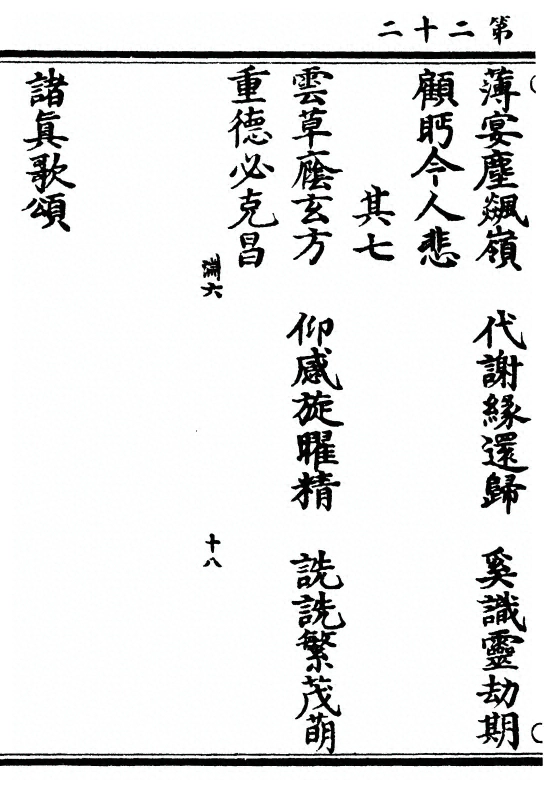 第二十二
薄宴塵飆嶺 代謝緣還歸 奚識靈劫期
顧眄令人悲
其七
雲草廕玄方 仰感旋曜精 詵詵繁茂萌
重德必克昌
淵六 十八
諸眞歌頌